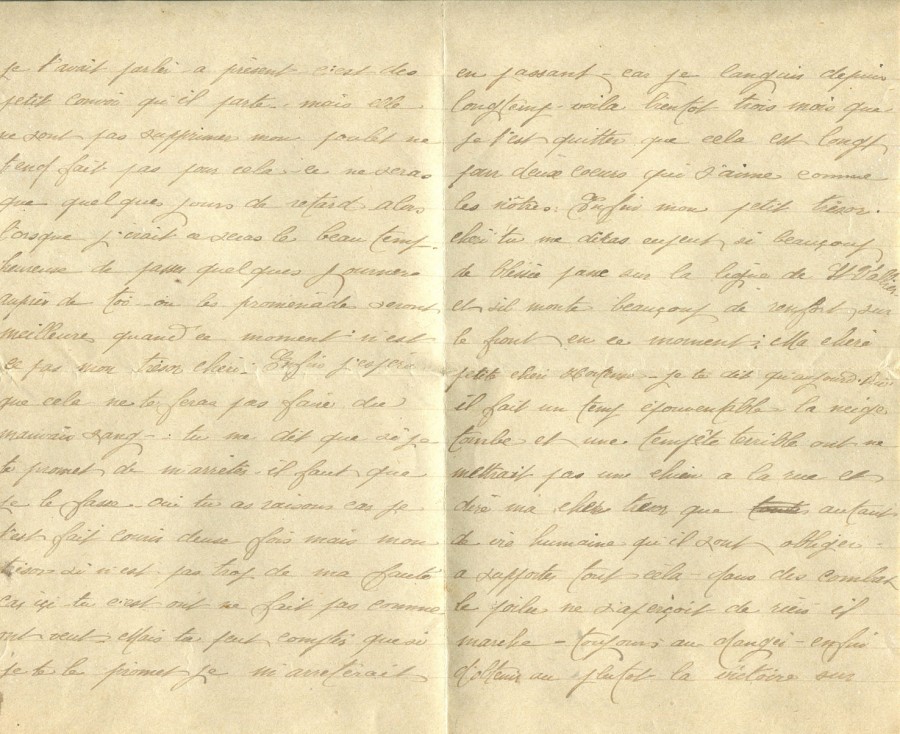 je t'avait parlé a présent c'est des
petit convoi qu'il parte. mais elle
ne sont pas supprimer mon poulet ne
t'en fait pas pour cela ce ne seras
que quelque jours de retard alors
lorsque j'irait ce seras le beau temp
heureuse de passer quelques journers
auprès de toi ou les promenade seront
meilleure quand ce moment n'est
ce pas mon trésor chéri. Enfin j'espère
que cela ne te feras pas faire du
mauvais sang : tu me dit que si je
te promet de m'arrêter il faut que
je le fasse. oui tu as raisons car je
t'est fait courir deuse fois mais mon
trésor si n'est pas trop de ma faute
car içi tu c'est ont ne fait pas comme
ont veut Mais ta peut comptés que si
je te le promet je m'arrêterait
en passant - car je languis depuis
longtemp voila bientot trois mois que
je t'est quitter que cela est longt
pour deuse coeurs qui s'aime comme
les nôtres. Enfin mon petit trésor.
cheri tu me diras enfent si beaucoup
de bléssée passe sur la ligne de
et s'il monte beaucoup de renfort sur
le front en ce moment ; Ma chère
petite - je te dit qu'aujourd'hui
il fait un temp épouventable la neige
tombe et une tempête terrible ont ne
mettrait pas une chien a la rue et
dire ma cher trésor que autant
de vie humaine qu'il sont obliger
a supporter tout cela dans des combat
le poilu ne s'aperçoit de rien il
marche - toujours au danger - enfin
d'obtenir au plutot la victoire sur